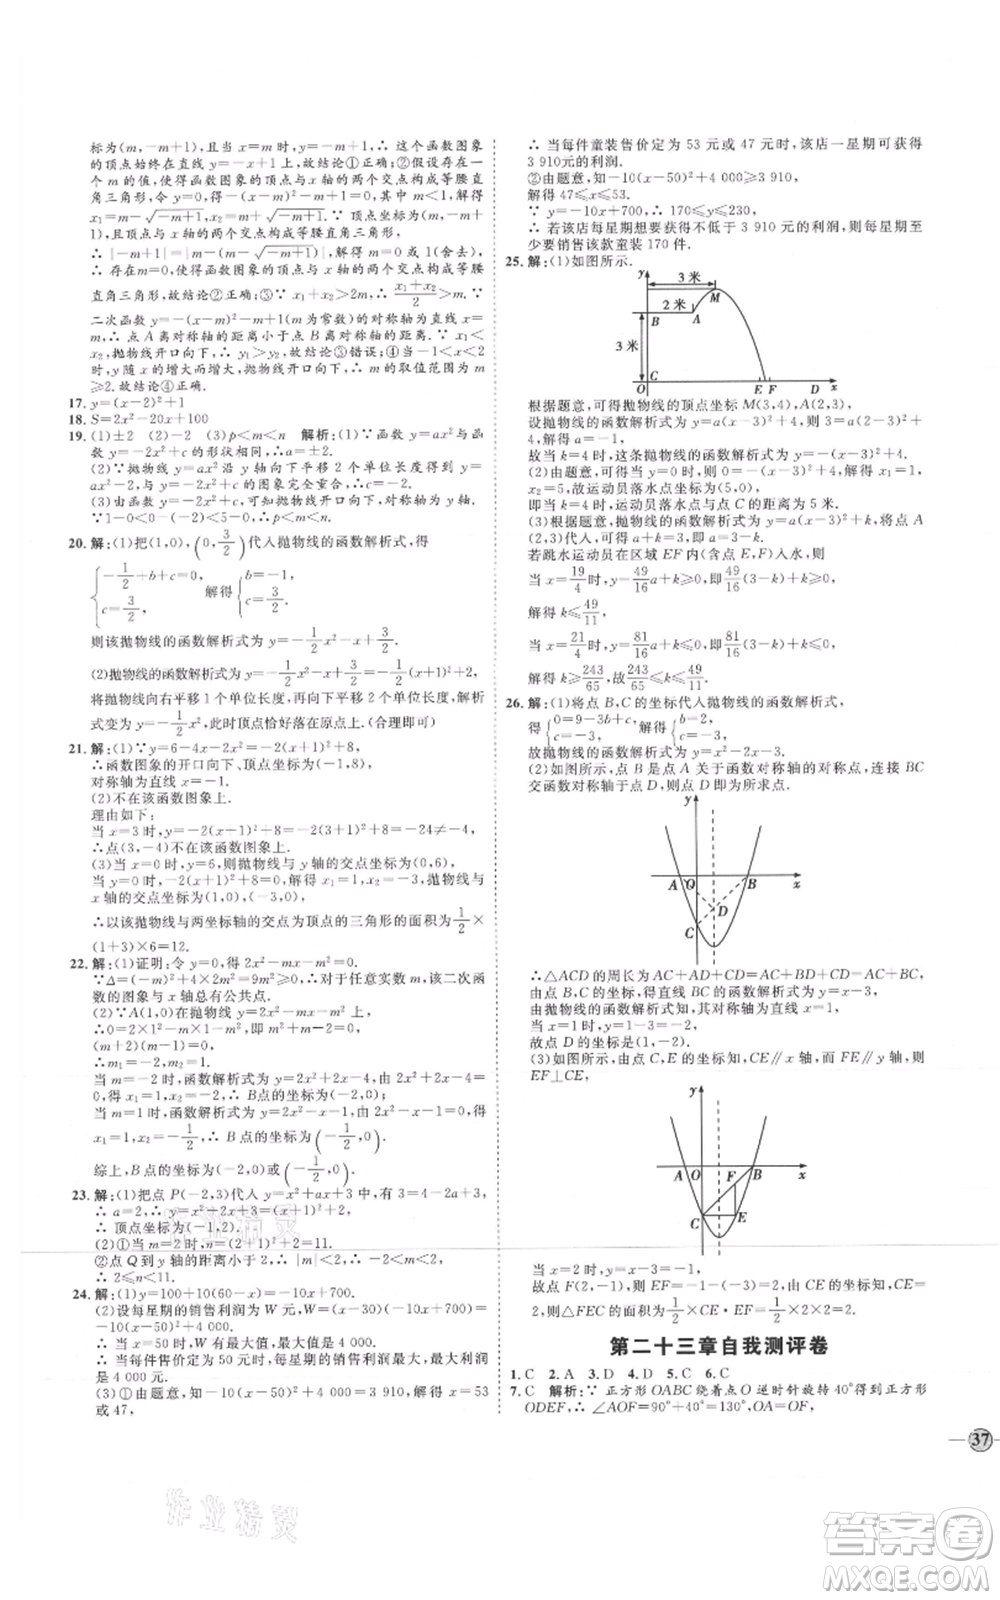 标为(m,-m+1),当x=m时,y=-m+1,∴这个函数图象
的顶点始终在直线y=-x+1上,故结论①正确;②假设存在一
个m的值,使得函数图象的顶点与x轴的两个交点构成等腰直
角三角形,令y=0,得-(x-m)²-m+1=0,其中m<1,解得
x₁=m-√(-m+1),x₂=m+√(-m+1).∵顶点坐标为(m,-m+
1),且顶点与x轴的两个交点构成等腰直角三角形,
∴|-m+1|=|m-(m-√(-m+1))|,解得m=0或1(舍去).
∴存在m=0,使得函数图象的顶点与x轴的两个交点构成等腰
直角三角形,故结论②正确;③∵x₁+x₂>2m,∴(x₁+x₂)/2>m.∵
二次函数y=-(x-m)²-m+1(m为常数)的对称轴为直线x=
m,∴点A离对称轴的距离小于点B离对称轴的距离.∵x₁<
x₂,抛物线开口向下,∴y₁>y₂,故结论③错误;④当-1<x<2
时,y随x的增大而增大,抛物线开口向下,∴m的取值范围为m
≥2,故结论④正确.
17.y=(x-2)²+1
18.S=2x²-20x+100
19.(1)±2 (2)-2 (3)p<m<n 解析:(1)∵函数y=ax²与函
数y=-2x²+c的形状相同,∴a=±2.
(2)∵抛物线y=ax²沿y轴向下平移2个单位长度就能与
y=-2x²+c的图象完全重合,∴a=-2.
(3)由函数y=-2x²+c,可知抛物线开口向下,对称轴为y轴.
∵1-0<0-(-2)<5-0,∴p<m<n.
20.解:(1)把(1,0),(0,3/2)代入抛物线的函数解析式,得
{-1/2+b+c=0, c=3/2, 解得{b=-1, c=3/2.
则该抛物线的函数解析式为y=-1/2x²-x+3/2.
(2)抛物线的函数解析式为y=-1/2x²-x+3/2=-1/2(x+1)²+2,
将抛物线向右平移1个单位长度,再向下平移2个单位长度,解析
式变为y=-1/2x²,此时顶点恰好落在原点上.(合理即可)
21.解:(1)∵y=6-4x-2x²=-2(x+1)²+8,
∴函数图象的开口向下,顶点坐标为(-1,8),
对称轴为直线x=-1.
(2)不在该函数图象上.
理由如下:
当x=3时,y=-2(x+1)²+8=-2(3+1)²+8=-24,
∴点(3,-4)不在该函数图象上.
(3)当x=0时,y=6,则抛物线与y轴的交点坐标为(0,6);
当y=0时,-2(x+1)²+8=0,解得x₁=1,x₂=-3,则抛物线与x
轴的交点坐标为(1,0),(-3,0),
∴以该抛物线与两坐标轴的交点为顶点的三角形的面积为1/2×
(1+3)×6=12.
22.解:(1)证明:令y=0,得2x²-mx-m²=0.
∵Δ=(-m)²+4×2×m²=9m²≥0,∴对于任意实数m,该二次函
数的图象与x轴总有公共点.
(2)∵A(1,0)在抛物线y=2x²-mx-m²上,
∴0=2×1²-m×1-m²,即m²+m-2=0,
(m+2)(m-1)=0,
∴m₁=-2,m₂=1.
当m=-2时,函数解析式为y=2x²+2x-4.由2x²+2x-4=
0,得x₁=1,x₂=-2,∴B点的坐标为(-2,0);
当m=1时,函数解析式为y=2x²-x-1.由2x²-x-1=0,得
x₁=1,x₂=-1/2,∴B点的坐标为(-1/2,0).
综上,B点的坐标为(-2,0)或(-1/2,0).
23.解:(1)把点P(-2,3)代入y=x²+ax+3,得3=4-2a+3,
∴a=2,∴y=x²+2x+3=(x+1)²+2.
∴顶点坐标为(-1,2).
(2)①当m=2时,n=2²+2×2+3=11.
②点Q到y轴的距离小于2,∴|m|<2,∴-2<m<2,
∴2≤n<11.
24.解:(1)y=100+10(60-x)=-10x+700.
(2)设每星期的销售利润为W元,W=(x-30)(-10x+700)=
-10(x-50)²+4 000.
∴当x=50时,W有最大值,最大值为4 000.
∴当每件售价定为50元时,每星期的销售利润最大,最大利润
为4 000元.
(3)①由题意,知-10(x-50)²+4 000=3 910,解得x=53
或47,
∴当每件童装售价定为53元或47元时,该店一星期可获得
3 910元的利润.
②由题意,知-10(x-50)²+4 000≥3 910,
解得47≤x≤53.
∵y=-10x+700,∴170≤y≤230,
∴若该店每星期想要获得不低于3 910元的利润,则每星期至
少要销售该款童装170件.
25.解:(1)如图所示.
y
3米
M
2米
B
A
3米
C
O
E F D x
根据题意,可得抛物线的顶点坐标M(3,4),A(2,3),
设抛物线的函数解析式为y=a(x-3)²+k,
故当k=4时,这条抛物线的函数解析式为y=-(x-3)²+4.
(2)由题意,可得当y=0时,0=-(x-3)²+4,解得x₁=1,
x₂=5,故运动员落水点坐标为(5,0),
即当k=4时,运动员落水点与点C的距离为5米.
(3)根据题意,抛物线的函数解析式为y=a(x-3)²+k,将点A
(2,3)代入,可得a+k=3,即a=3-k.
若跳水运动员在区域EF内(含点E,F)入水,则
当x=19/4时,y=49/16a+k≥0,即49/16(3-k)+k≥0,
解得k≤49/11.
当x=21/4时,y=81/16a+k≤0,即81/16(3-k)+k≤0,
解得k≥243/65,故243/65≤k≤49/11.
26.解:(1)将点B,C的坐标代入抛物线的函数解析式,
得{0=9-3b+c, c=-3, 解得{b=2, c=-3.
故抛物线的函数解析式为y=x²-2x-3.
(2)如图所示,点B是点A关于函数对称轴的对称点,连接BC
交函数对称轴于点D,则点D即为所求点.
y
A O B x
D
C
∴△ACD的周长为AC+AD+CD=AC+BC.
由点B,C的坐标,得直线BC的函数解析式为y=x-3,
由抛物线的函数解析式知,其对称轴为直线x=1,
当x=1时,y=x-3=-2,
故点D的坐标为(1,-2).
(3)如图所示,由点C,E的坐标知,CE∥x轴,而FE∥y轴,则
EF⊥CE,
y
A O F B x
C E
当x=2时,y=x-3=-1,
故点F(2,-1),则EF=-1+3=2,由CE的坐标,得CE=
2,则△FEC的面积为1/2×CE·EF=1/2×2×2=2.
第二十三章自我测评卷
1.C 2.A 3.D 4.D 5.C 6.C
7.C 解析:∵正方形OABC绕着点O逆时针旋转40°得到正方形
ODEF,∴∠AOF=90°+40°=130°,OA=OF,
37
作业精灵
作业精灵
答案卷
MXQE.COM